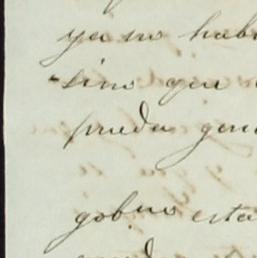 ya no hab
sino que
pueda gen
gobno esta